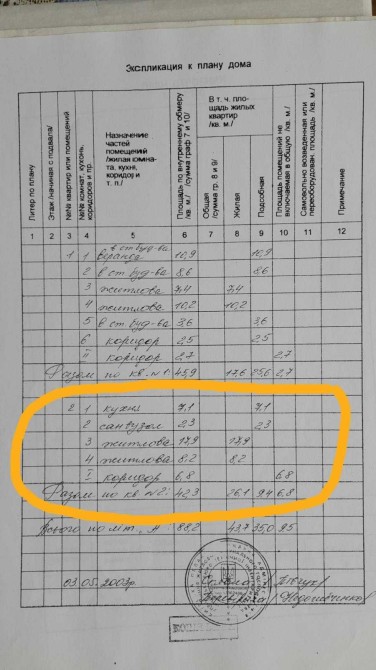 Экспликация к плану дома
Литер по плану
Этаж /начиная с подвала/
№№ квартир или помещений
№№ комнат, кухонь, коридоров и пр.
Назначение частей помещений /жилая комната, кухня, коридор и т. п./
Площадь по внутреннему обмеру /кв. м./ /сумма граф 7 и 10/
В т. ч. площадь жилых квартир /кв. м./
Общая /сумма гр. 8 и 9/
Жилая
Подсобная
Площадь помещений не включаемая в общую /кв. м./
Самовольно возведенная или переоборудован. площадь /кв. м./
Примечание
1 2 3 4 5 6 7 8 9 10 11 12
в ст. буд-ва
3 1 веранда 10,9 10,9
2 в ст. буд-ва 8,6 8,6
3 житлова 7,4 7,4
4 житлова 10,2 10,2
5 в ст. буд-ва 3,6 3,6
6 коридор 2,5 2,5
II коридор 2,7 2,7
Разом по кв. №1: 45,9 17,6 25,6 2,7
2 1 кухня 7,1 7,1
2 санвузол 2,3 2,3
3 житлова 17,9 17,9
4 житлова 8,2 8,2
I коридор 6,8 6,8
Разом по кв №2: 42,3 26,1 9,4 6,8
Всього по літ. А 88,2 43,7 35,0 9,5
03.05.2003р.